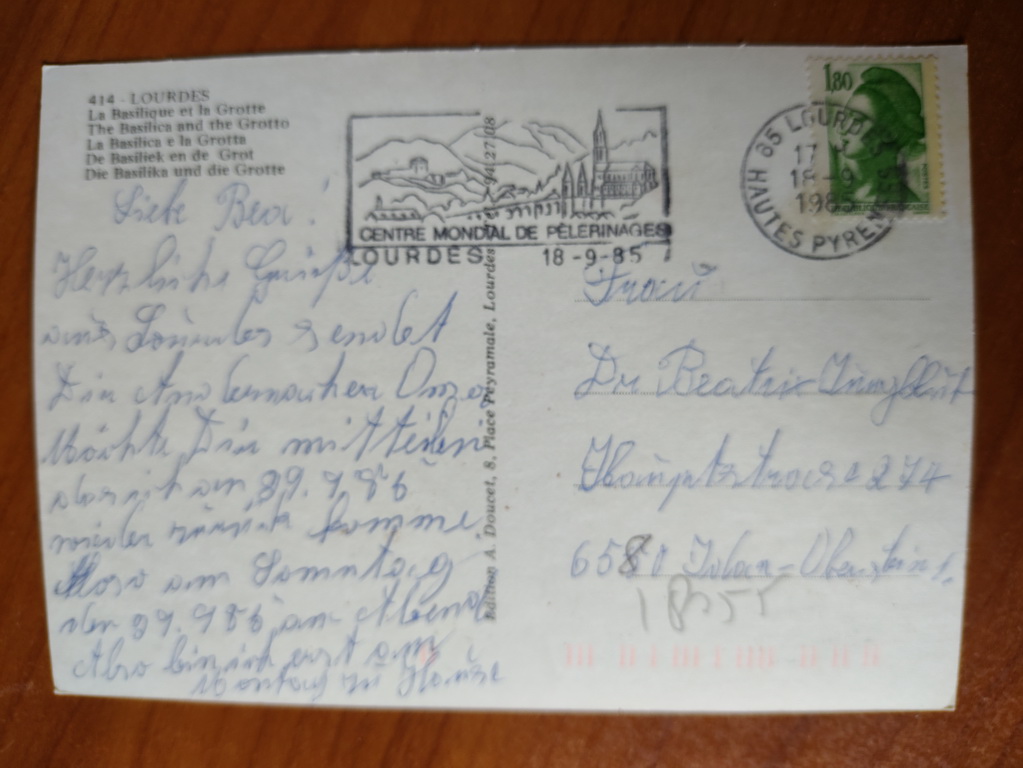 414 - LOURDES
La Basilique et la Grotte
The Basilica and the Grotto
La Basilica e la Grotta
De Basiliek en de Grot
Die Basilika und die Grotte
Liebe Bea!
Herzliche Grüße
aus Lourdes sendet
Dir
Möchte Dir mitteilen
das ich am 29.9.85
wieder zurück komme
Also am Sonntag
den 29.9.85 am Abend
Also bin ich erst am
Montag zu Hause
Edition A. Doucet, 8, Place Peyramale, Lourdes
CENTRE MONDIAL DE PÈLERINAGES
LOURDES 18-9-85
1,80
65 LOURDES
17 H
18-9
1985
HAUTES PYRENEES
Frau
Dr Beatrix Jungblut
Hauptstrasse 274
6580 Idar-Oberstein 1